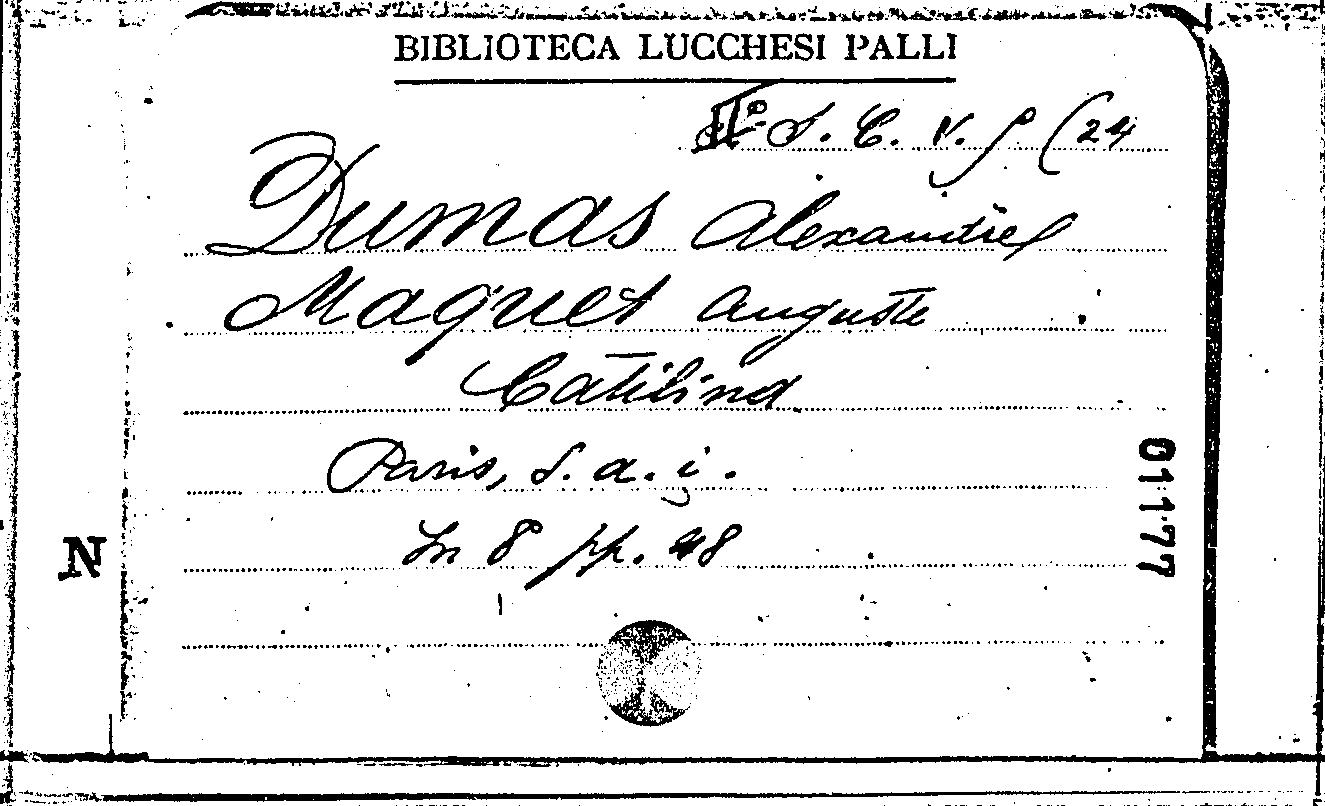 BIBLIOTECA LUCCHESI PALLI
IIº S. C. V. 9 (24
Dumas Alexandre
Maquet Auguste
Catilina
Paris, S. a. i.
In 8º pp. 48
N
01177